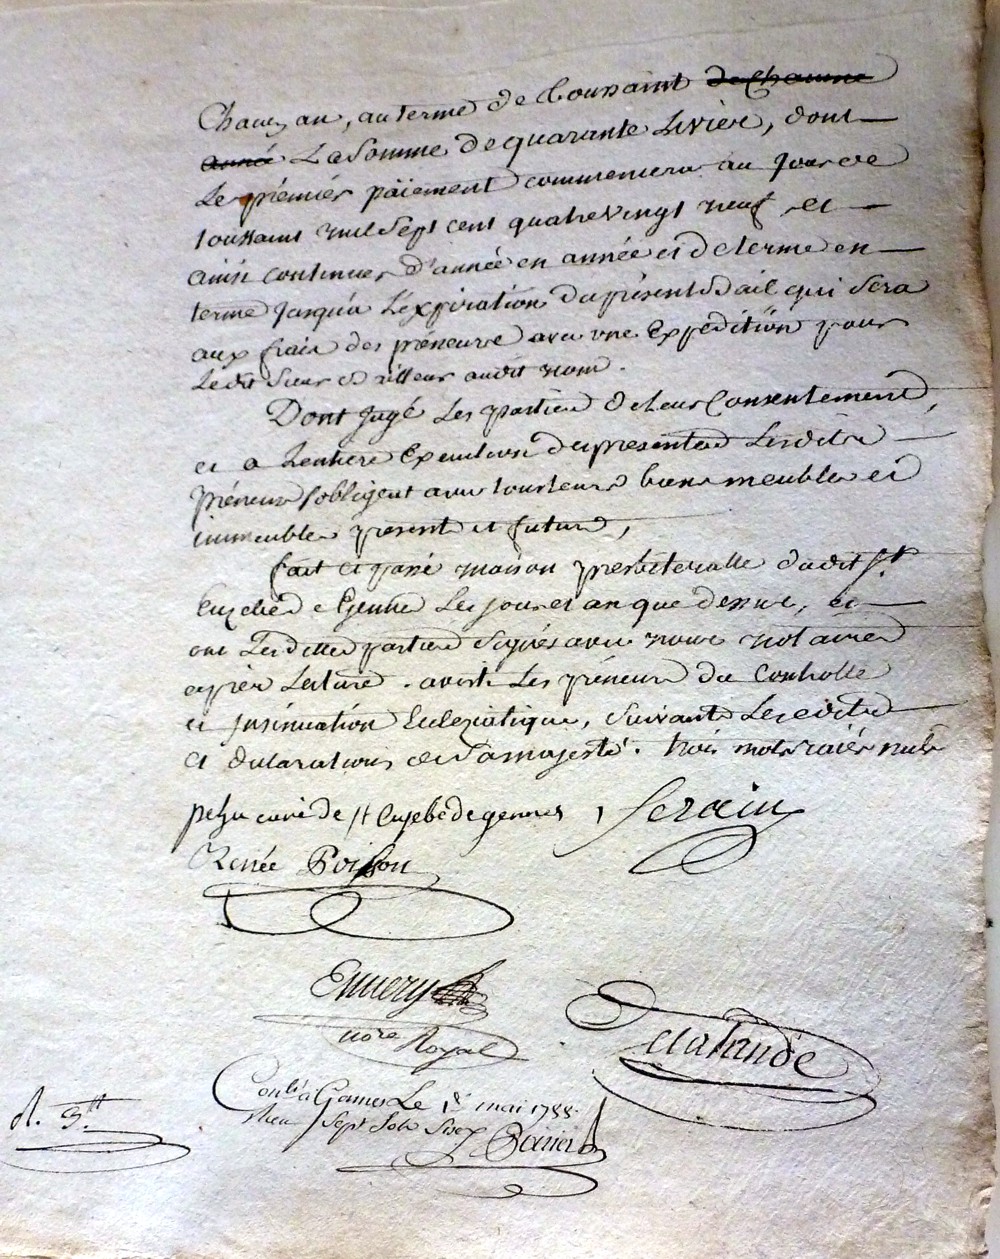 Chacun an, au terme de toussaint de chacune
année La somme de quarante Livres, dont
Le prémier païement commencera au jour de
toussaint mil sept cent quatre vingt neuf et
ainsi continuer d'année en année et de terme en
terme jusqu'a L'expiration du présent Bail qui sera
aux frais des préneurs avec une Expédition pour
Ledit Sieur Bailleur audit nom.
Dont jugé Les parties de Leur Consentement,
et a Lentiere Execution des presentes Lesdits
préneurs s'obligent avec tous leurs biens meubles et
immeubles present et futurs,
fait et passé maison presbiteralle dudit St
Euzebe de Genne Les jour et an que dessus, et
ont Lesdittes parties signés avec nous notaires
apres Lecture. averti Les préneurs du Controlle
et insinuation Ecleziatique, suivant Les edits
et declarations de sa majesté. trois mots raiés nuls
curé de st Euzebe de gennes Serain
Renée Poisson
Emery
no.re Royal
Delalande
Con.lé à Gennes Le 1er mai 1788.
Reçu Sept Sols Six
R. 3.tt